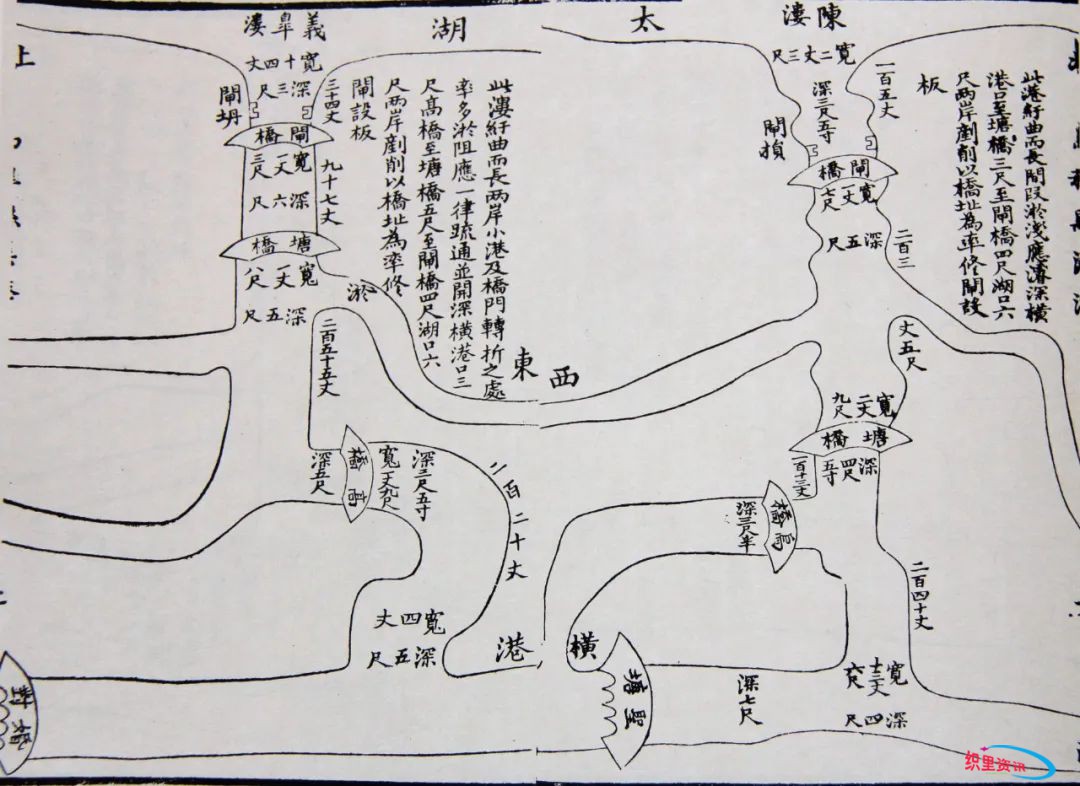 陳漊
太
湖
義皐漊
寬二丈三尺
深三尺五寸
一百五丈
此港紆曲而長間段淤淺應濬深橫
港口至塘橋三尺至閘橋四尺湖口六
尺兩岸剷削以橋址為率修閘設
板
閘損
閘橋
寬一丈七尺
深五尺
二百三
丈五尺
寬二丈九尺
塘橋
深四尺五寸
一百十三丈
深三尺半
二百四十丈
寬十三丈
深四尺
深七尺
聖塘
橫
港
西
東
寬十四丈
深三尺
三十四丈
閘坍
閘橋
寬一丈三尺
深六尺
九十七丈
塘橋
寬一丈八尺
深五尺
淤
此漊紆曲而長兩岸小港及橋門轉折之處
率多淤阻應一律疏通並開深橫港口三
尺高橋至塘橋五尺至閘橋四尺湖口六
尺兩岸剷削以橋址為率修
閘設板
二百五十五丈
高橋
深五尺
寬一丈九尺
深三尺五寸
二百二十丈
寬四丈
深五尺
织里资讯